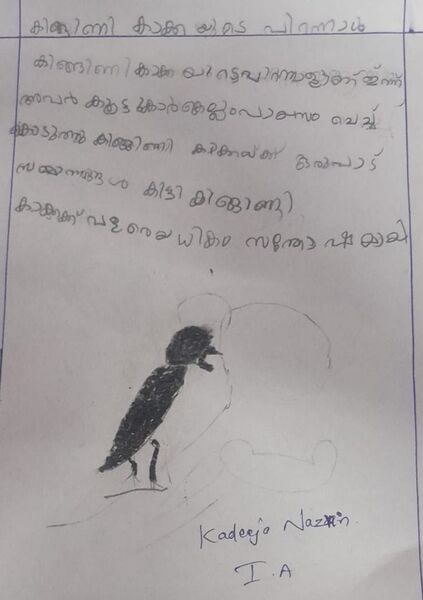 കിങ്ങിണി കാക്ക യുടെ പിറന്നാൾ
കിങ്ങിണി കാക്ക യുടെ പിറന്നാളാണ് ഇന്ന്
അവൾ കൂട്ടുകാർക്കെല്ലാം പായസം വെച്ച്
കൊടുത്തു കിങ്ങിണി കാക്കയ്ക്ക് ഒരുപാട്
സമ്മാനങ്ങൾ കിട്ടി കിങ്ങിണി
കാക്കക്ക് വളരെയധികം സന്തോഷമായി
Kadeeja Nazrin
I.A